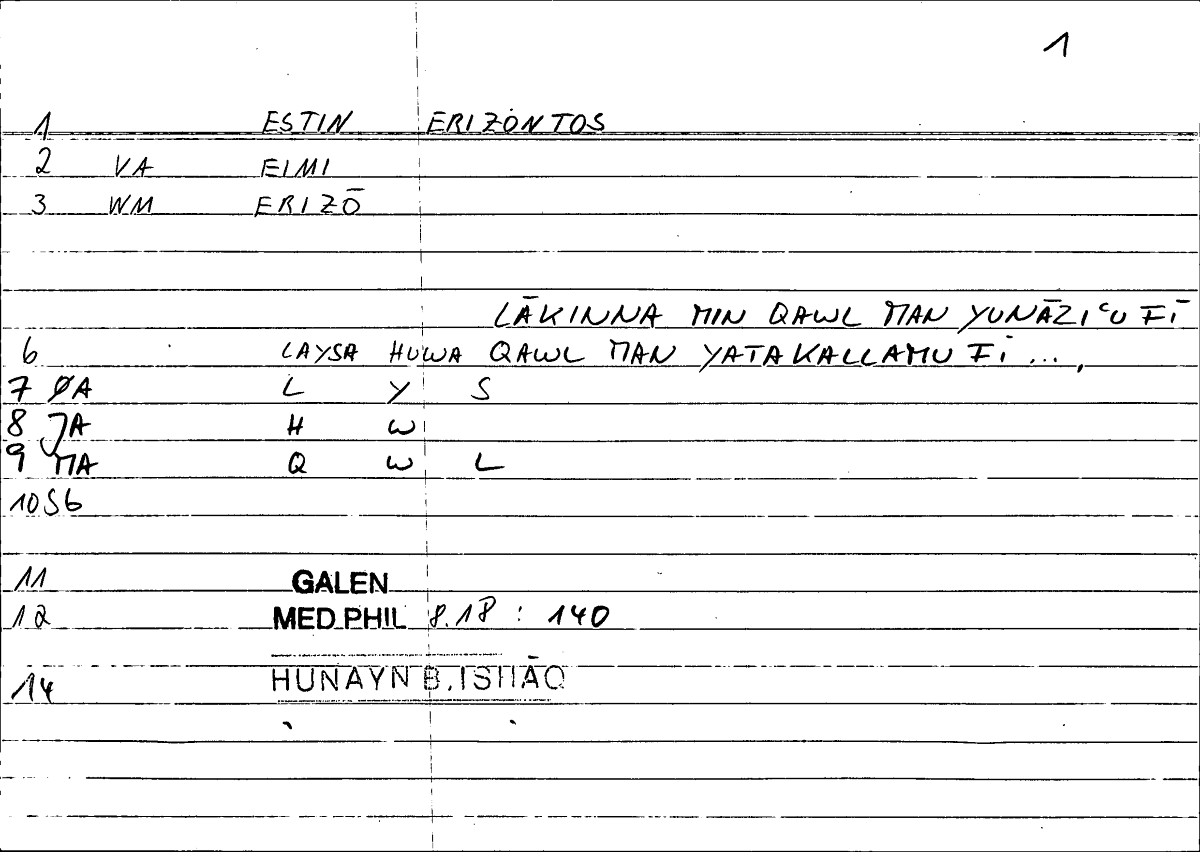 1
1 ESTIN ERIZONTOS
2 VA EIMI
3 WM ERIZŌ
LĀKINNA MIN QAWL MAN YUNĀZIʿU FĪ
6 LAYSA HUWA QAWL MAN YATAKALLAMU FĪ ...,
7 ØA L Y S
8 JA H W
9 MA Q W L
10 Sb
11 GALEN
12 MED PHIL 8.18 : 140
14 HUNAYN B. ISHĀQ